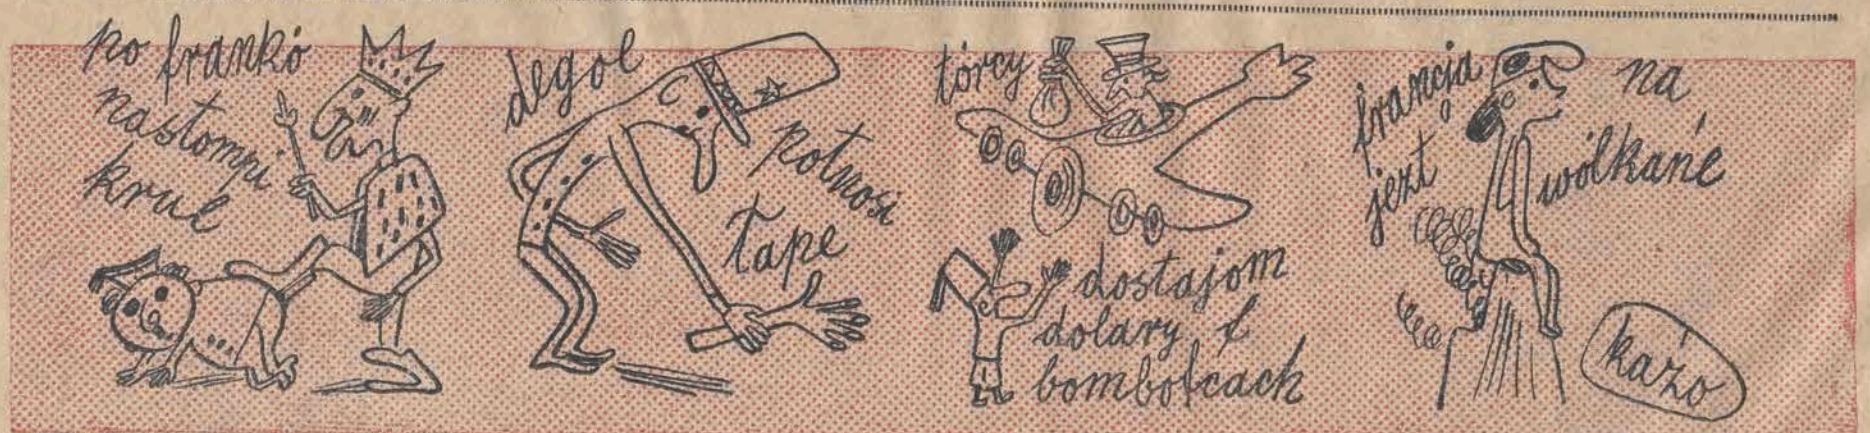 po frankó
nastompi
krul
degol
potnosi
łape
tórcy
dostajom
dolary f
bombofcach
francja
jezt
na
wólkańe
kaźo